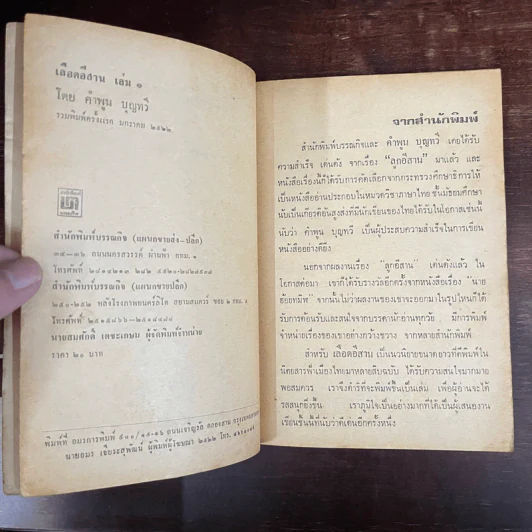 เลือดอีสาน เล่ม ๑
โดย คำพูน บุญทวี
รวมพิมพ์ครั้งแรก มกราคม ๒๕๒๒
สำนักพิมพ์บรรณกิจ (แผนกขายส่ง-ปลีก)
๓๔-๓๖ ถนนนครสวรรค์ ผ่านฟ้า กทม. ๑
โทรศัพท์
สำนักพิมพ์บรรณกิจ (แผนกขายปลีก)
หลังโรงภาพยนตร์ลิโด สยามสแควร์ ซอย ๒ กทม. ๕
โทรศัพท์
นายสมศักดิ์ เตชะเกษม ผู้จัดพิมพ์จำหน่าย
ราคา ๒๐ บาท
พิมพ์ที่ ถนนเจริญรัถ คลองสาน
ผู้พิมพ์ผู้โฆษณา ๒๕๒๒ โทร.
จากสำนักพิมพ์
สำนักพิมพ์บรรณกิจและ คำพูน บุญทวี เคยได้รับ
ความสำเร็จ เด่นดัง จากเรื่อง “ลูกอีสาน” มาแล้ว และ
หนังสือเรื่องนี้ก็ได้รับการคัดเลือกจากกระทรวงศึกษาธิการให้
เป็นหนังสืออ่านประกอบในหมวดวิชาภาษาไทย ชั้นมัธยมศึกษา
นับเป็นเกียรติอันสูงส่งที่มีนักเขียนของไทยได้รับในโอกาสเช่นนี้
นับว่า คำพูน บุญทวี เป็นผู้ประสบความสำเร็จในการเขียน
หนังสืออย่างดียิ่ง
นอกจากผลงานเรื่อง “ลูกอีสาน” เด่นดังแล้ว ใน
โอกาสต่อมา เขาก็ได้รับรางวัลอีกครั้งจากหนังสือเรื่อง “นาย
ฮ้อยทมิฬ” จากนั้นไม่ว่าผลงานของเขาจะออกมาในรูปไหนก็ได้
รับการต้อนรับและสนใจจากบรรดานักอ่านทุกวัย มีการพิมพ์
จำหน่ายเรื่องของเขาอย่างกว้างขวาง จากหลายสำนักพิมพ์
สำหรับ เลือดอีสาน เป็นนวนิยายขนาดยาวที่ตีพิมพ์ใน
นิตยสารฟ้าเมืองไทยมาหลายสิบฉบับ ได้รับความสนใจมากมาย
พอสมควร เราจึงดำริที่จะพิมพ์ขึ้นเป็นเล่ม เพื่อผู้อ่านจะได้
รสสนุกยิ่งขึ้น เราภูมิใจเป็นอย่างมากที่ได้เป็นผู้เสนองาน
เขียนชิ้นนี้ที่นับว่าดีเด่นอีกครั้งหนึ่ง